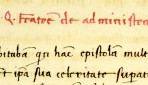 Q. fratrē de administra
bitabā qn hac epistola mult
et ipā sua celeritate supat